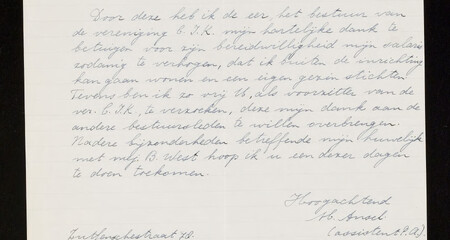 Door deze heb ik de eer, het bestuur van
de vereniging C.I.K. mijn hartelijke dank te
betuigen voor zijn bereidwilligheid mijn salaris
zodanig te verhogen, dat ik buiten de inrichting
kan gaan wonen en een eigen gezin stichten.
Tevens ben ik zo vrij U, als voorzitter van de
ver. C.I.K., te verzoeken, deze mijn dank aan de
andere bestuursleden te willen overbrengen.
Nadere bijzonderheden betreffende mijn huwelijk
met mej. B. West hoop ik u een dezer dagen
te doen toekomen.
Hoogachtend
Ansel
(assistent P.A.)